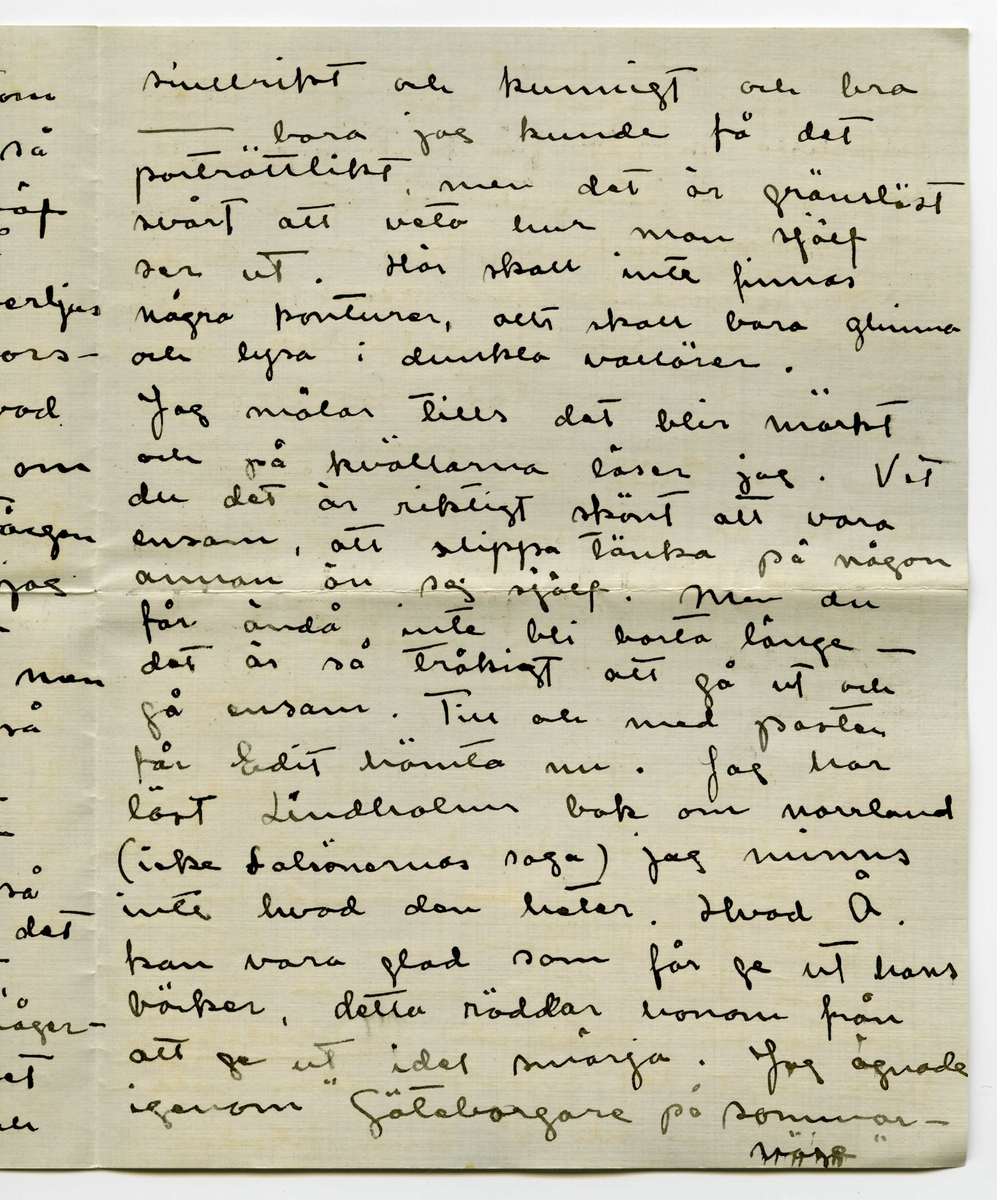 sinnrikt och kunnigt och bra
— bara jag kunde få det
porträttlikt, men det är gränslöst
svårt att veta hur man själf
ser ut. Här skall inte finnas
några konturer, allt skall bara glimma
och lysa i dunkla vallörer.
Jag målar tills det blir mörkt
och på kvällarna läser jag. Vet
du det är riktigt skönt att vara
ensam, att slippa tänka på någon
annan än sej själf. Men du
får ändå inte bli borta länge —
det är så tråkigt att gå ut och
gå ensam. Till och med posten
får Edit hämta nu. Jag har
läst Lindholms bok om norrland
(icke Ladsönernas saga) jag minns
inte hvad den heter. Hvad Å.
kan vara glad som får ge ut hans
böcker, detta räddar honom från
att ge ut idel smörja. Jag ögnade
igenom "Göteborgare på sommar-
nöje"
om
så
verljus
ors-
vad
om
jag
men
så
så
det